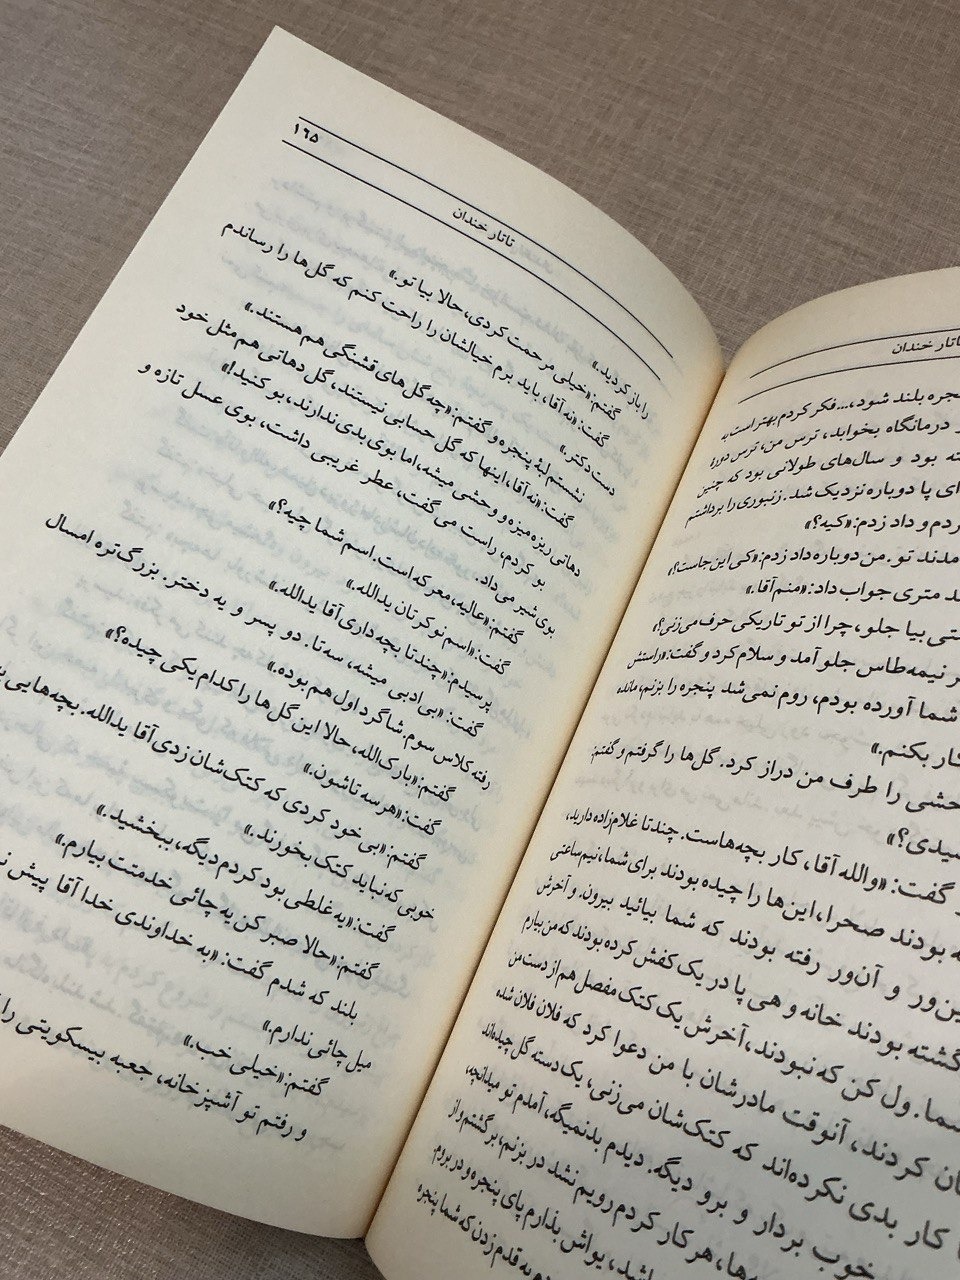 تاتار خندان
بلند شود،... فکر کردم بهتر است به
درمانگاه بخوابد، ترس من، ترس دورهٔ
بود و سال‌های طولانی بود که چنین
ای پا دوباره نزدیک شد. زنبوری را برداشتم
و داد زدم: «کیه؟»
تو. من دوباره داد زدم: «کی این جاست؟»
متری جواب داد: «منم آقا.»
بیا جلو، چرا از تو تاریکی حرف می‌زنی؟»
نیمه‌طاس جلو آمد و سلام کرد و گفت: «راستش
شما آورده بودم، روم نمی‌شد پنجره را بزنم، مانده
بکنم.»
را طرف من دراز کرد. گل‌ها را گرفتم و گفتم:
گفت: «والله آقا، کار بچه‌هاست. چندتا غلام‌زاده دارید،
بودند صحرا، این‌ها را چیده بودند برای شما، نیم‌ساعتی
و آن‌ور رفته بودند که شما بیائید بیرون. و آخرش
بودند خانه و هی پا در یک کفش کرده بودند که من بیارم
ول کن که نبودند، آخرش یک کتک مفصل هم از دست من
کردند، آنوقت مادرشان با من دعوا کرد که فلان فلان شده
کار بدی نکرده‌اند که کتک‌شان می‌زنی، یک دسته گل چیده‌اند
خوب بردار و برو دیگه. دیدم بد نمیگه، آمدم تو میدانچه،
هر کار کردم رویم نشد در بزنم، برگشتم و از
یواش بذارم پای پنجره و در بروم
به قدم زدن که شما پنجره
۱۶۵
تاتار خندان
را باز کردید.»
گفتم: «خیلی مرحمت کردی، حالا بیا تو.»
گفت: «نه آقا، باید برم خیالشان را راحت کنم که گل‌ها را رساندم
دست دکتر.»
نشستم لبهٔ پنجره و گفتم: «چه گل‌های قشنگی هم هستند.»
گفت: «نه آقا، اینها که گل حسابی نیستند، گل دهاتی هم مثل خود
دهاتی ریزه میزه و وحشی میشه، اما بوی بدی ندارند، بو کنید!»
بو کردم، راست می‌گفت، عطر غریبی داشت، بوی عسل تازه و
بوی شیر می‌داد.
گفتم: «عالیه، معرکه است. اسم شما چیه؟»
گفت: «اسم نوکرتان یدالله.»
پرسیدم: «چندتا بچه داری آقا یدالله.»
گفت: «بی‌ادبی میشه، سه‌تا. دو پسر و یه دختر. بزرگ‌تره امسال
رفته کلاس سوم. شاگرد اول هم بوده.»
گفتم: «بارک‌الله، حالا این گل‌ها را کدام یکی چیده؟»
گفت: «هر سه تاشون.»
گفتم: «بی‌خود کردی که کتک‌شان زدی آقا یدالله. بچه‌هایی
خوبی که نباید کتک بخورند.»
گفت: «یه غلطی بود کردم دیگه، ببخشید.»
گفتم: «حالا صبر کن یه چائی خدمتت بیارم.»
بلند که شدم گفت: «به خداوندی خدا آقا پیش
میل چائی ندارم.»
گفتم: «خیلی خب.»
و رفتم تو آشپزخانه، جعبه بیسکویتی را